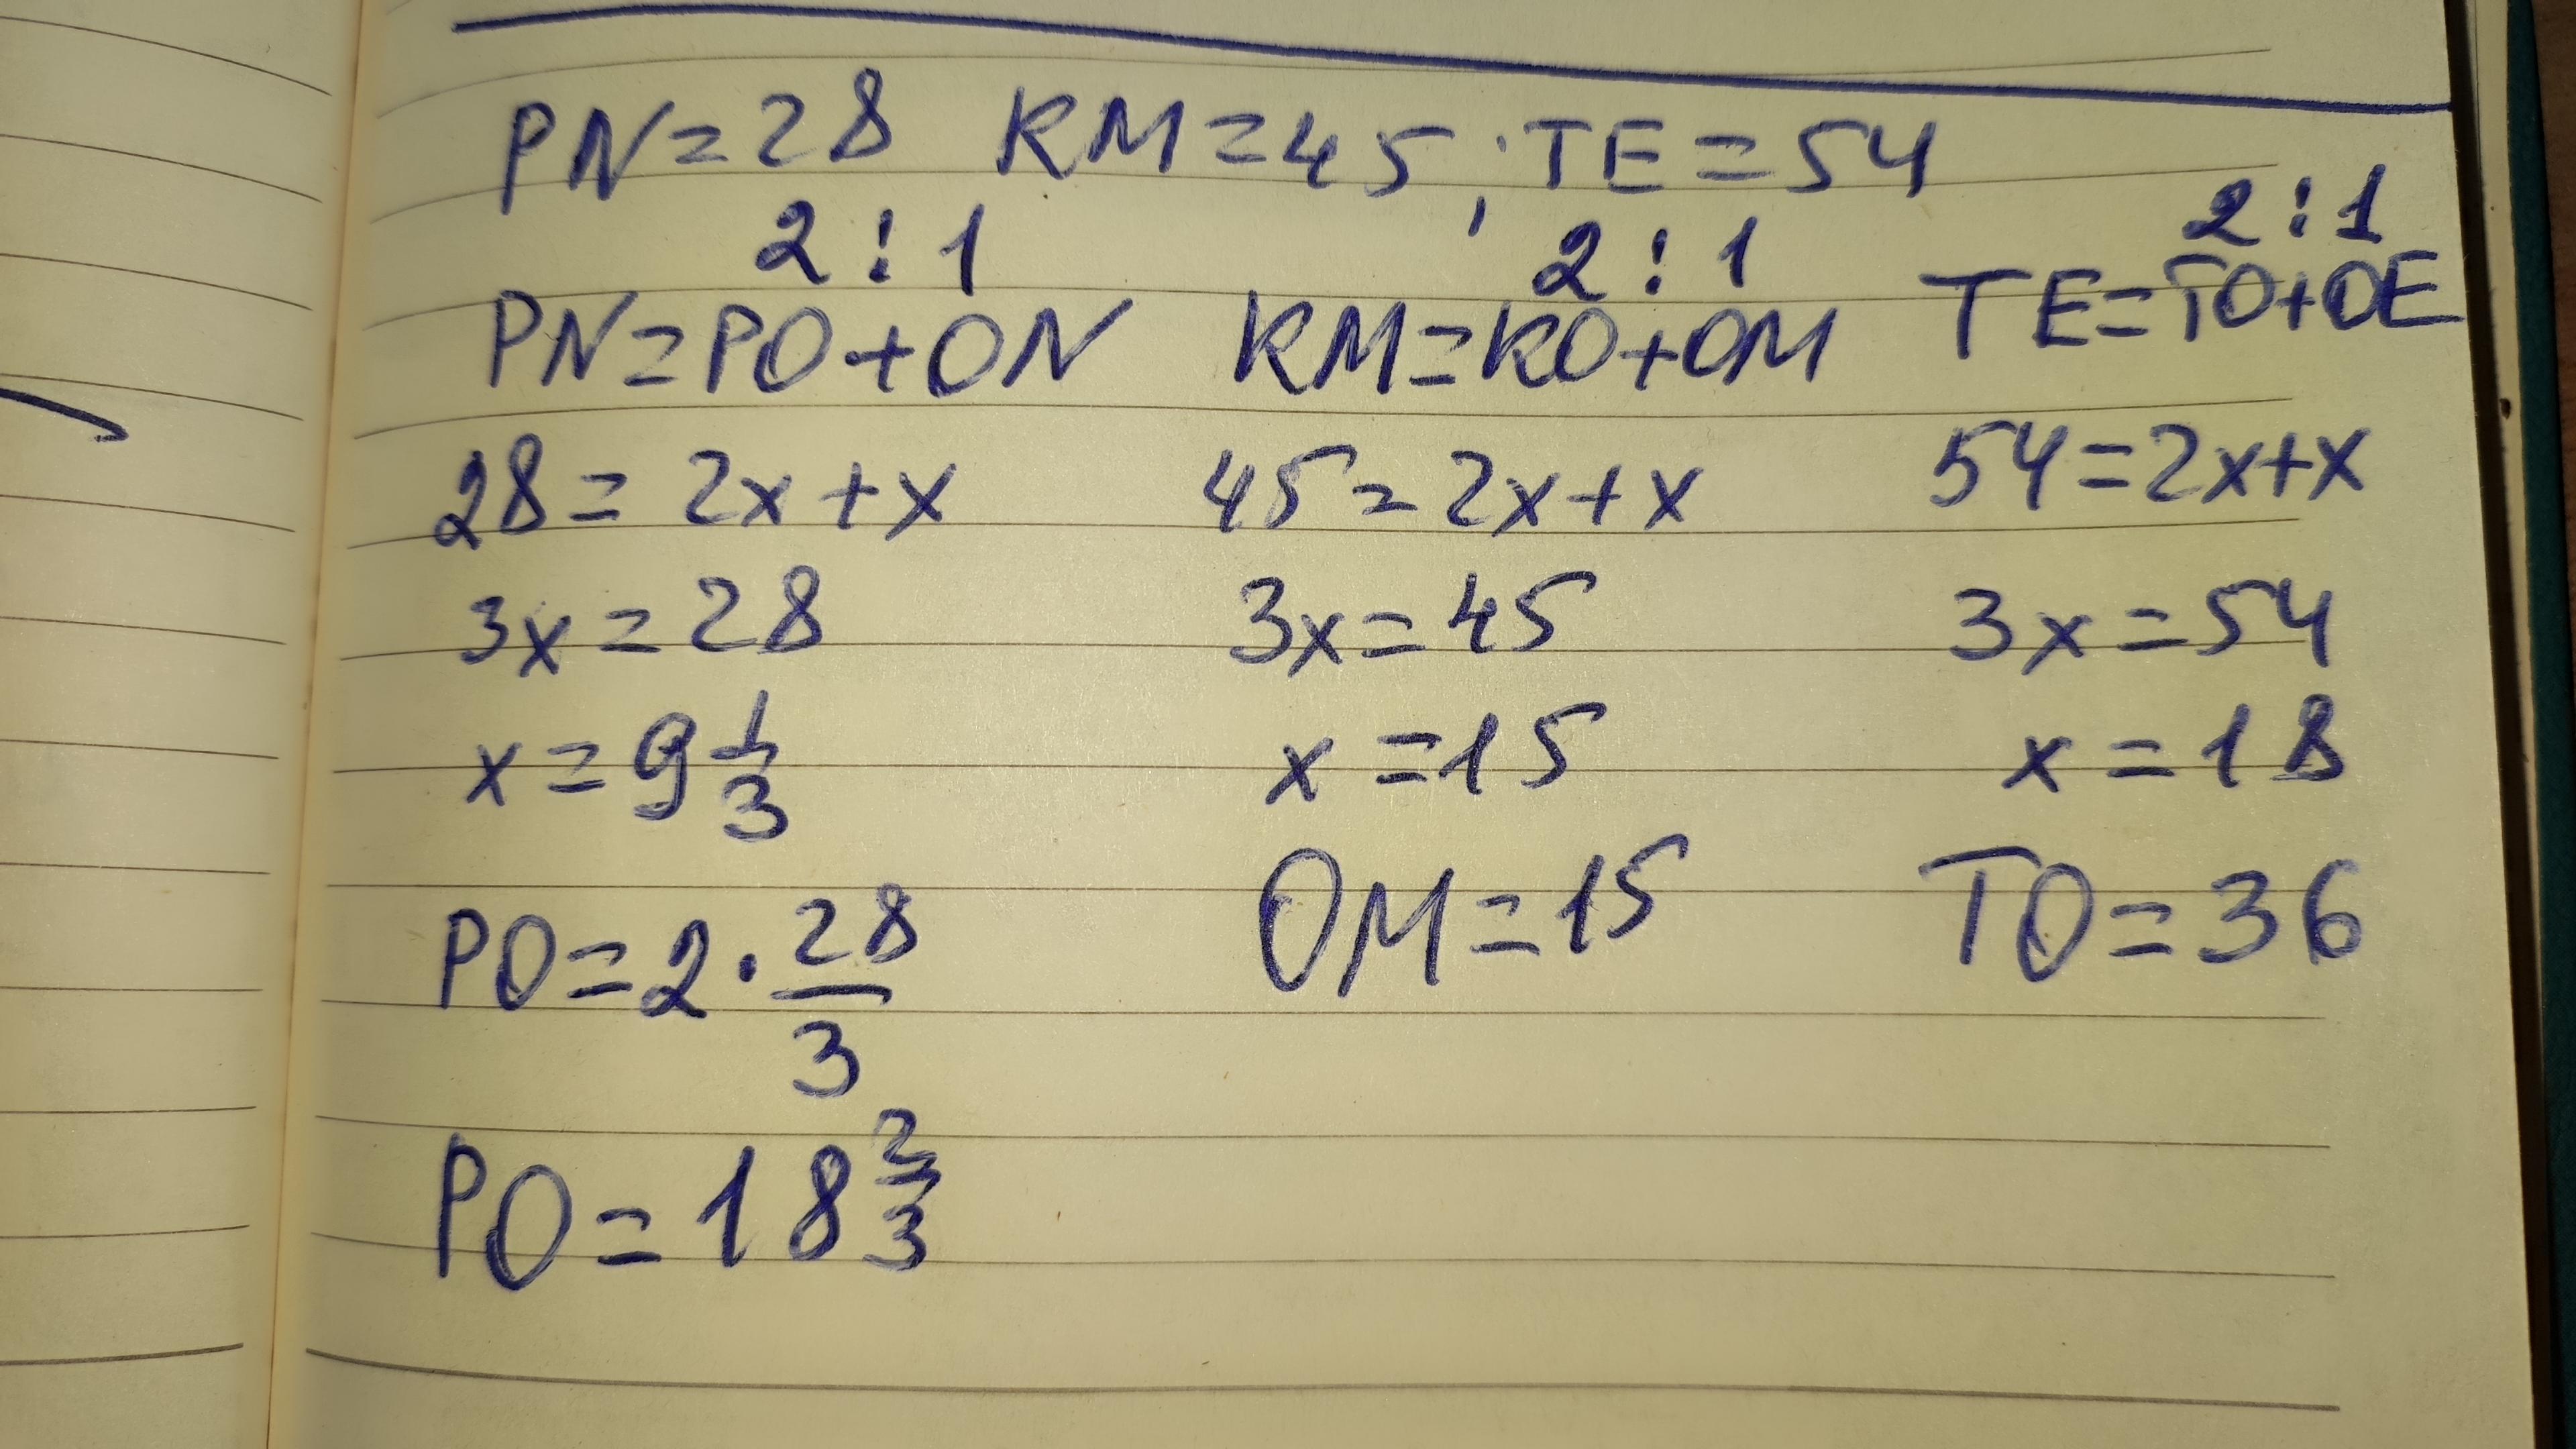 PN=28 KM=45, TE=54
2:1 2:1 2:1
PN=PO+ON KM=KO+OM TE=TO+OE
28=2x+x 45=2x+x 54=2x+x
3x=28 3x=45 3x=54
x=9 1/3 x=15 x=18
PO=2·28/3 OM=15 TO=36
PO=18 2/3